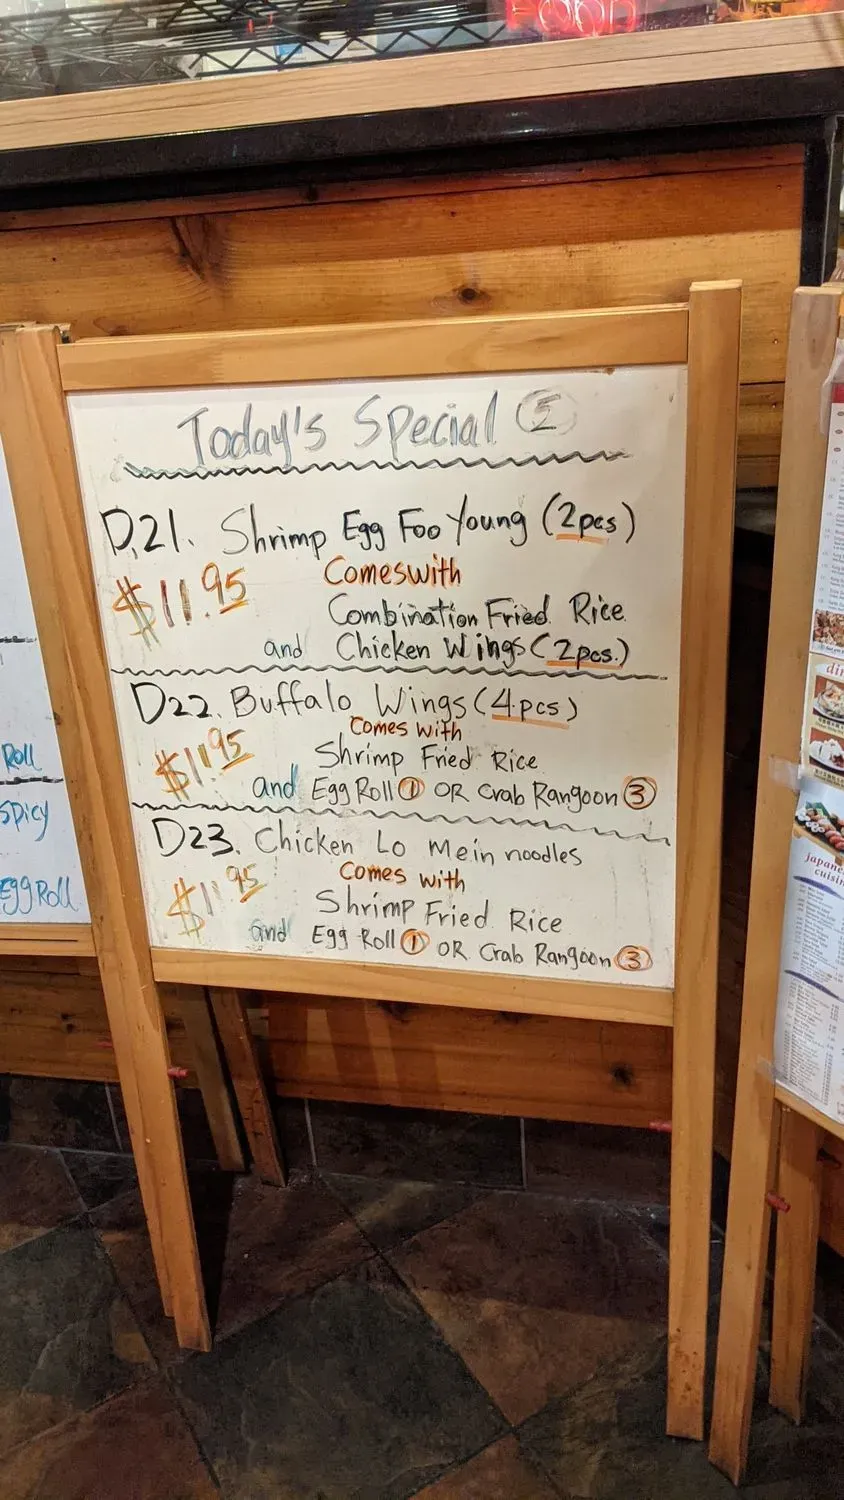 Today's Special ⑤
D.21. Shrimp Egg Foo Young (2pcs)
$11.95 Comes with
Combination Fried Rice
and Chicken Wings (2pcs.)
D22. Buffalo Wings (4pcs)
$11.95 Comes with
Shrimp Fried Rice
and Egg Roll ① OR Crab Rangoon ③
D23. Chicken Lo Mein noodles
$11.95 Comes with
Shrimp Fried Rice
and Egg Roll ① OR Crab Rangoon ③
Roll
Spicy
Egg Roll